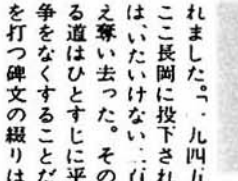 れました。「一九四五
ここ長岡に投下され
は、いたいけない二百
え奪い去った。その
る道はひとすじに平
争をなくすることだ
を打つ碑文の綴りは